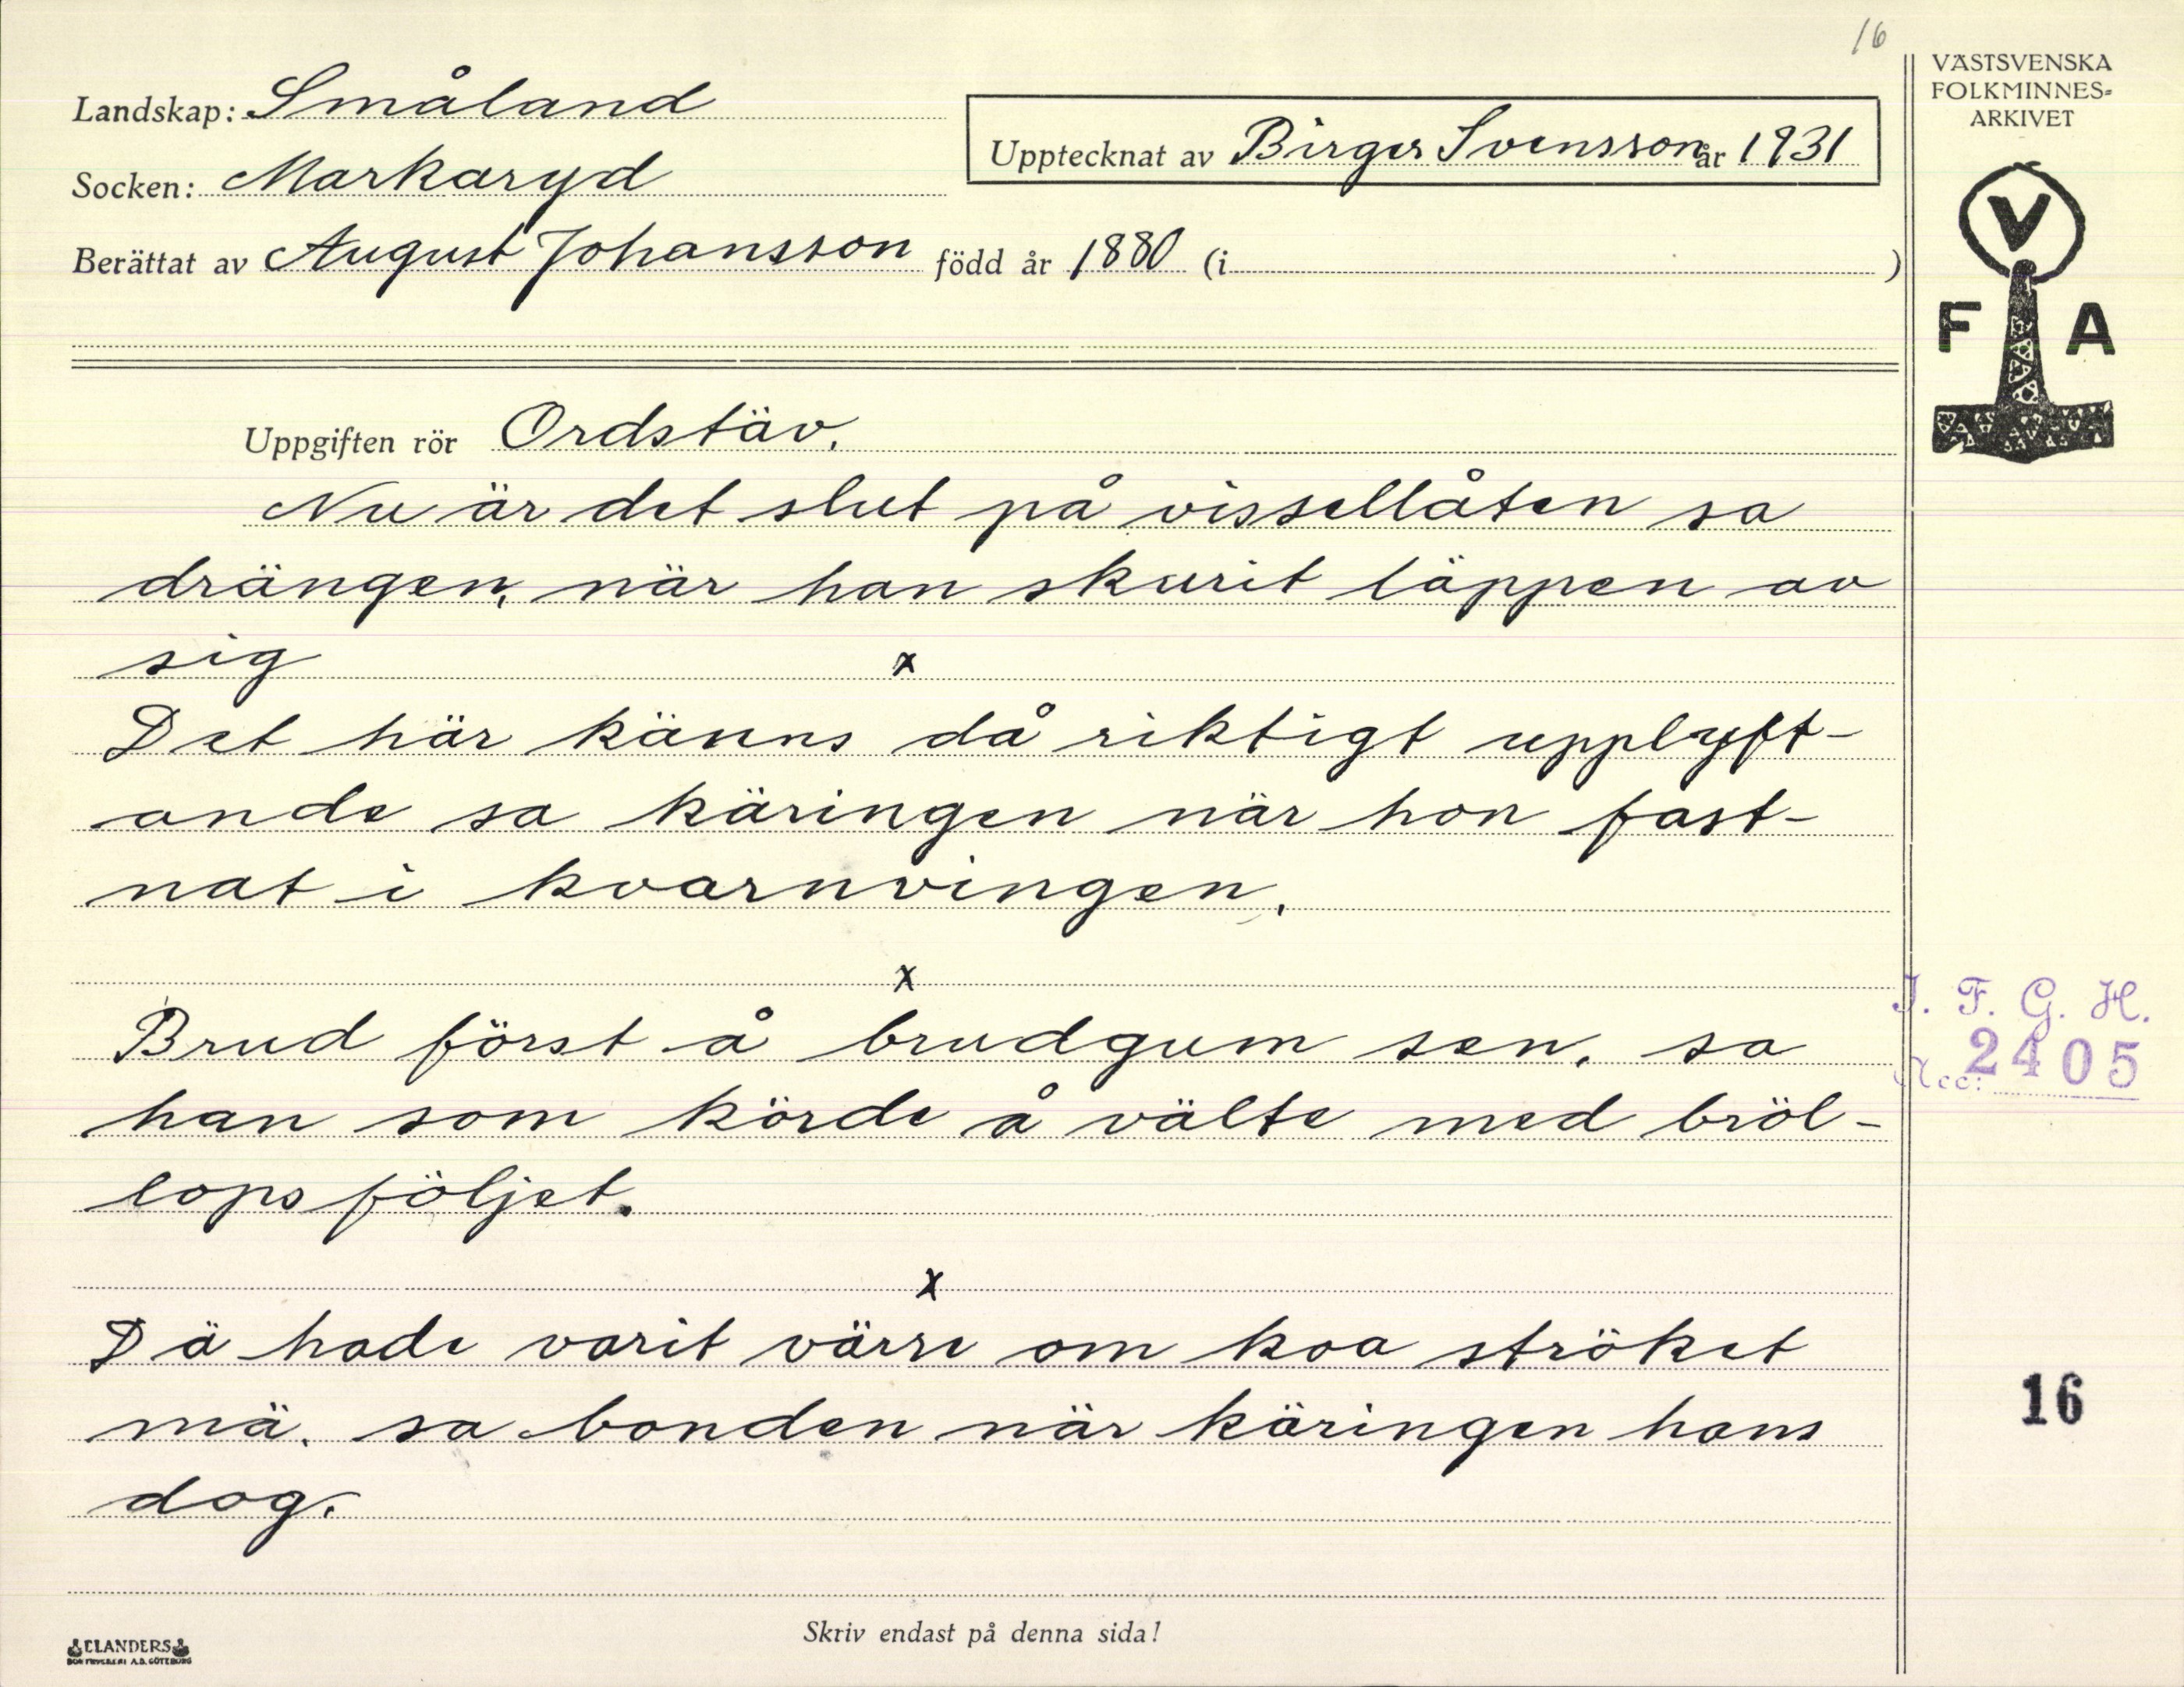 16
Landskap: Småland
Socken: Markaryd
Upptecknat av Birger Svensson år 1931
Berättat av August Johansson född år 1880 (i )
VÄSTSVENSKA
FOLKMINNES=
ARKIVET
V
F A
Uppgiften rör Ordstäv.
Nu är det slut på vissellåten sa
drängen, när han skurit läppen av
sig
x
Det här känns då riktigt upplyft-
ande sa käringen när hon fast-
nat i kvarnvingen.
x
Brud först å brudgum sen. sa
han som körde å välte med bröl-
lopsföljet.
x
Dä hade varit värre om koa ströket
mä. sa bonden när käringen hans
dog.
I. F. G. H.
Acc: 2405
16
Skriv endast på denna sida!
ELANDERS
BOKTRYCKERI A.B. GÖTEBORG